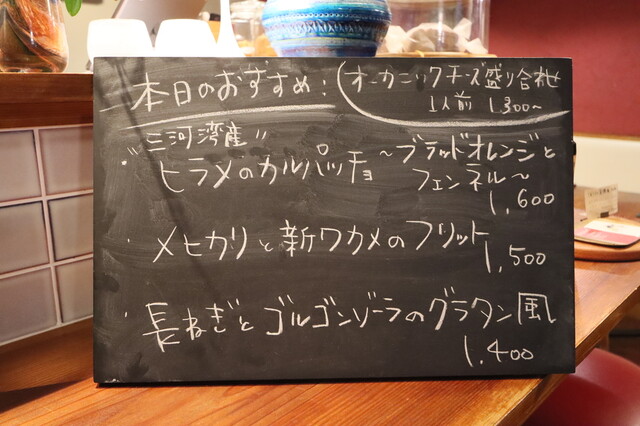 本日のおすすめ!
オーガニックチーズ盛り合せ
1人前 1,300~
"三河湾産"
・ヒラメのカルパッチョ ~ブラッドオレンジと
フェンネル~
1,600
・メヒカリと新ワカメのフリット 1,500
・長ねぎとゴルゴンゾーラのグラタン風
1,400